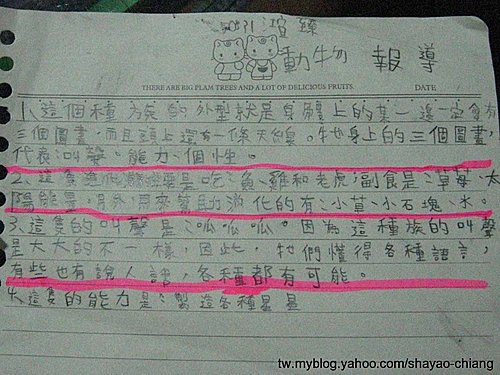 動物 報導
THERE ARE BIG PLAM TREES AND A LOT OF DELICIOUS FRUITS. DATE
1.這個種族的外型就是身體上的某一邊一定會有
三個圖畫,而且頭上還有一條天線。牠身上的三個圖畫
代表叫聲。能力、個性。
2.這隻 主要是吃、魚、雞和老虎,副食是、草莓、太
陽能量,另外,用來幫助消化的有、小草、小石塊、水。
3.這隻的叫聲是、呱、呱、呱。因為這種族的叫聲
是大大的不一樣,因此,牠們懂得各種語言,
有些也有說人話,各種都有可能。
4.這隻的能力是、製造各種星星
tw.myblog.yahoo.com/shayao-chiang